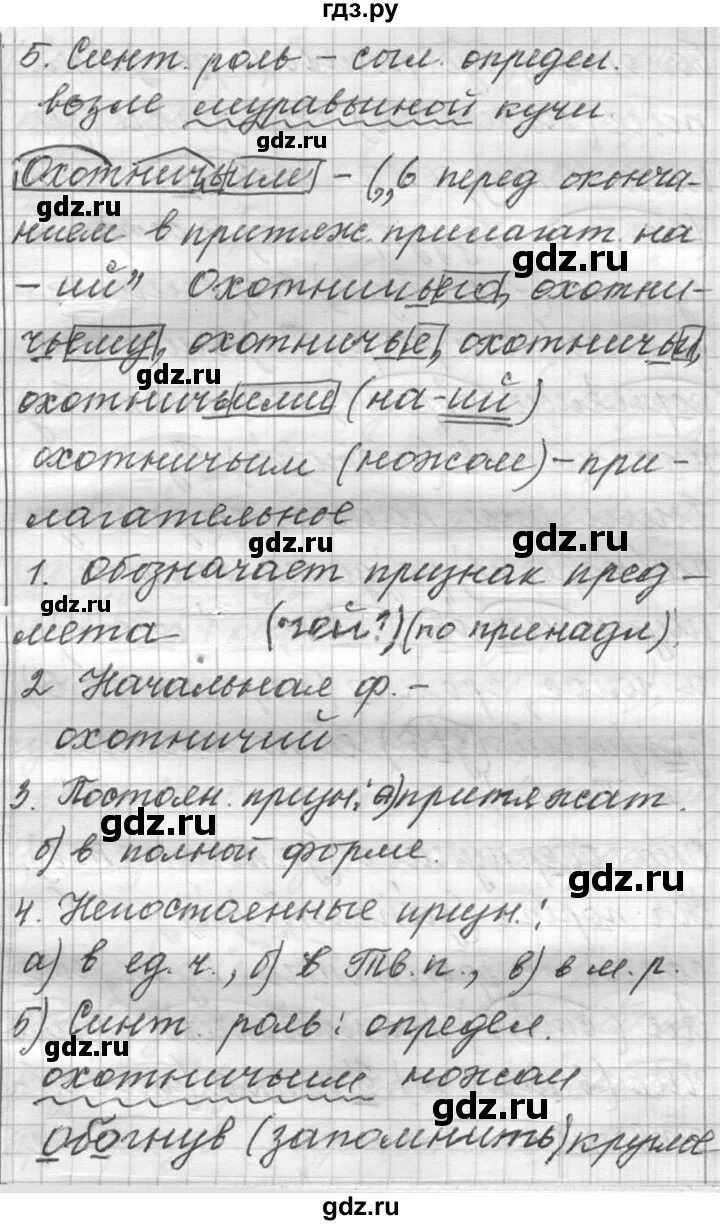 гдз.ру
5. Синт. роль – сыл. определ.
возле муравьиной кучи.
gdz.ru
Охотничьим – („ь перед оконча-
gdz.ru
нием в притяж. прилагат на
gdz.ru
– ий” Охотничьего, охотни-
чьему, охотничье, охотничьи,
gdz.ru
охотничьими (на -ий)
охотничьим (ножом) – при-
лагательное
gdz.ru
gdz.ru
1. Обозначает признак пред-
gdz.ru
мета (чей?) (по принадл)
2 Начальная ф. –
охотничий
3. Постоян. призн.: а) притяжат.
gdz.ru
б) в полной форме.
gdz.ru
4. Непостоянные призн.:
а) в ед. ч., б) в Тв. п., в) в м. р.
5) Синт. роль: определ.
gdz.ru
охотничьим ножом
gdz.ru
обогнув (запомнить) круглое
gdz.ru